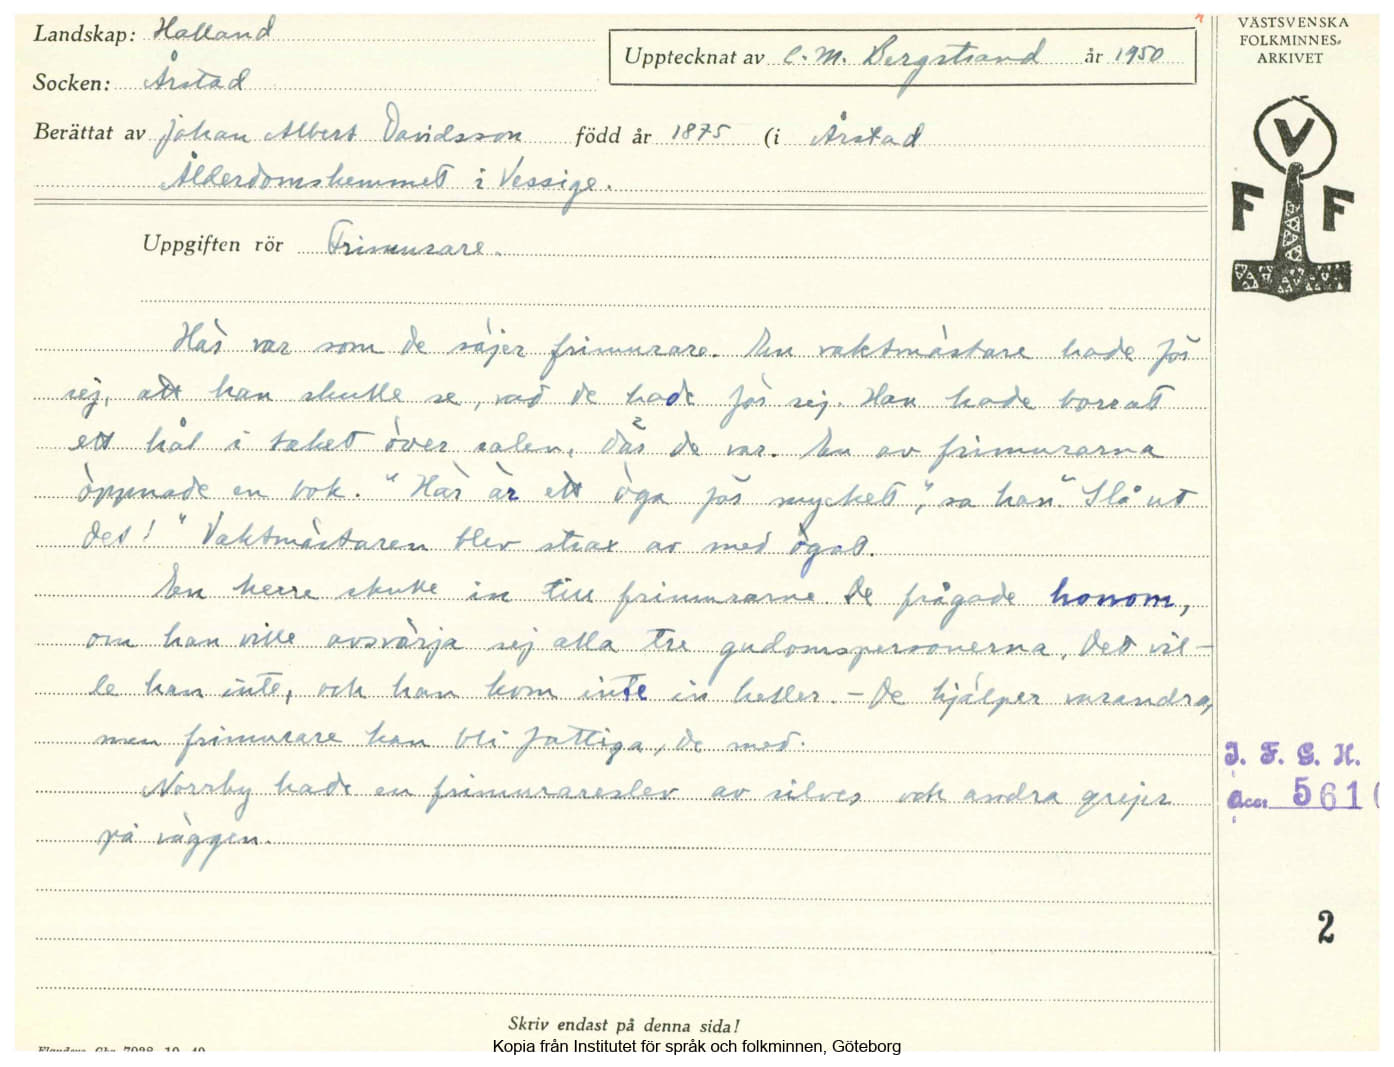 Landskap: Halland
Upptecknat av C. M. Bergstrand år 1950
VÄSTSVENSKA
FOLKMINNES-
ARKIVET
Socken: Årstad
Berättat av Johan Albert Davidsson född år 1875 (i Årstad
Ålderdomshemmet i Vessige.
V
F F
Uppgiften rör Frimurare.
Här var som de säjer frimurare. En vaktmästare hade för
sej, att han skulle se, vad de hade för sej. Han hade borrat
ett hål i taket över salen, där de var. En av frimurarna
öppnade en bok. "Här är ett öga för mycket", sa han. "Slå ut
det!" Vaktmästaren blev strax av med ögat.
En herre skulle in till frimurarne. De frågade honom,
om han ville avsvärja sej alla tre gudomspersonerna. Det vil-
le han inte, och han kom inte in heller. – De hjälper varandra,
men frimurare kan bli fattiga, de med.
Norrby hade en frimurareslev av silver och andra grejer
på väggen.
I. F. G. H.
acc: 5610
2
Skriv endast på denna sida!
Kopia från Institutet för språk och folkminnen, Göteborg